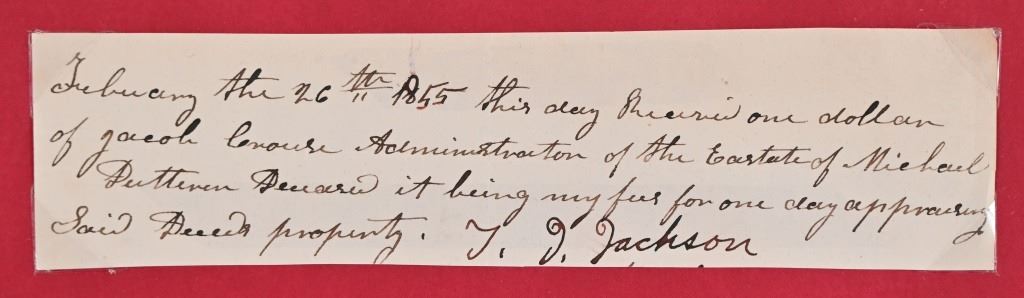 Febuary the 26th 1855 this day Received one dollar
of Jacob Crouse Administrator of the Eastate of Michael
Deceased it being my fees for one day appraising
Said Deceds property. T. J. Jackson